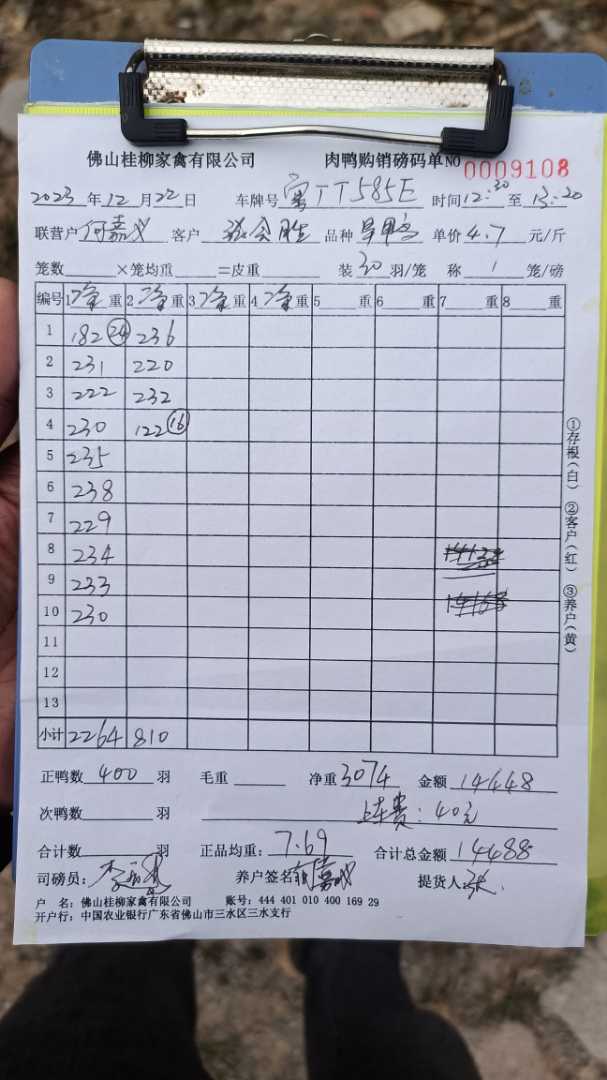 佛山桂柳家禽有限公司 肉鸭购销磅码单 NO 0009108
2023年12月22日 车牌号 TT585E 时间12:30至13:20
联营户 何嘉 客户 张会胜 品种 旱鸭 单价4.7元/斤
笼数 ×笼均重 =皮重 装30羽/笼 称1笼/磅
编号 1净重 2净重 3净重 4净重 5 重 6 重 7 重 8 重
1 182 (24) 236
2 231 220
3 222 232
4 230 122 (16)
5 235
6 238
7 229
8 234
9 233
10 230
11
12
13
小计 2264 810
①存根(白) ②客户(红) ③养户(黄)
正鸭数 400 羽 毛重 净重 3074 金额 14448
次鸭数 羽 上车费:40元
合计数 羽 正品均重:7.69 合计总金额 14488
司磅员: 养户签名 何嘉 提货人 张
户 名:佛山桂柳家禽有限公司 账号:444 401 010 400 169 29
开户行:中国农业银行广东省佛山市三水区三水支行